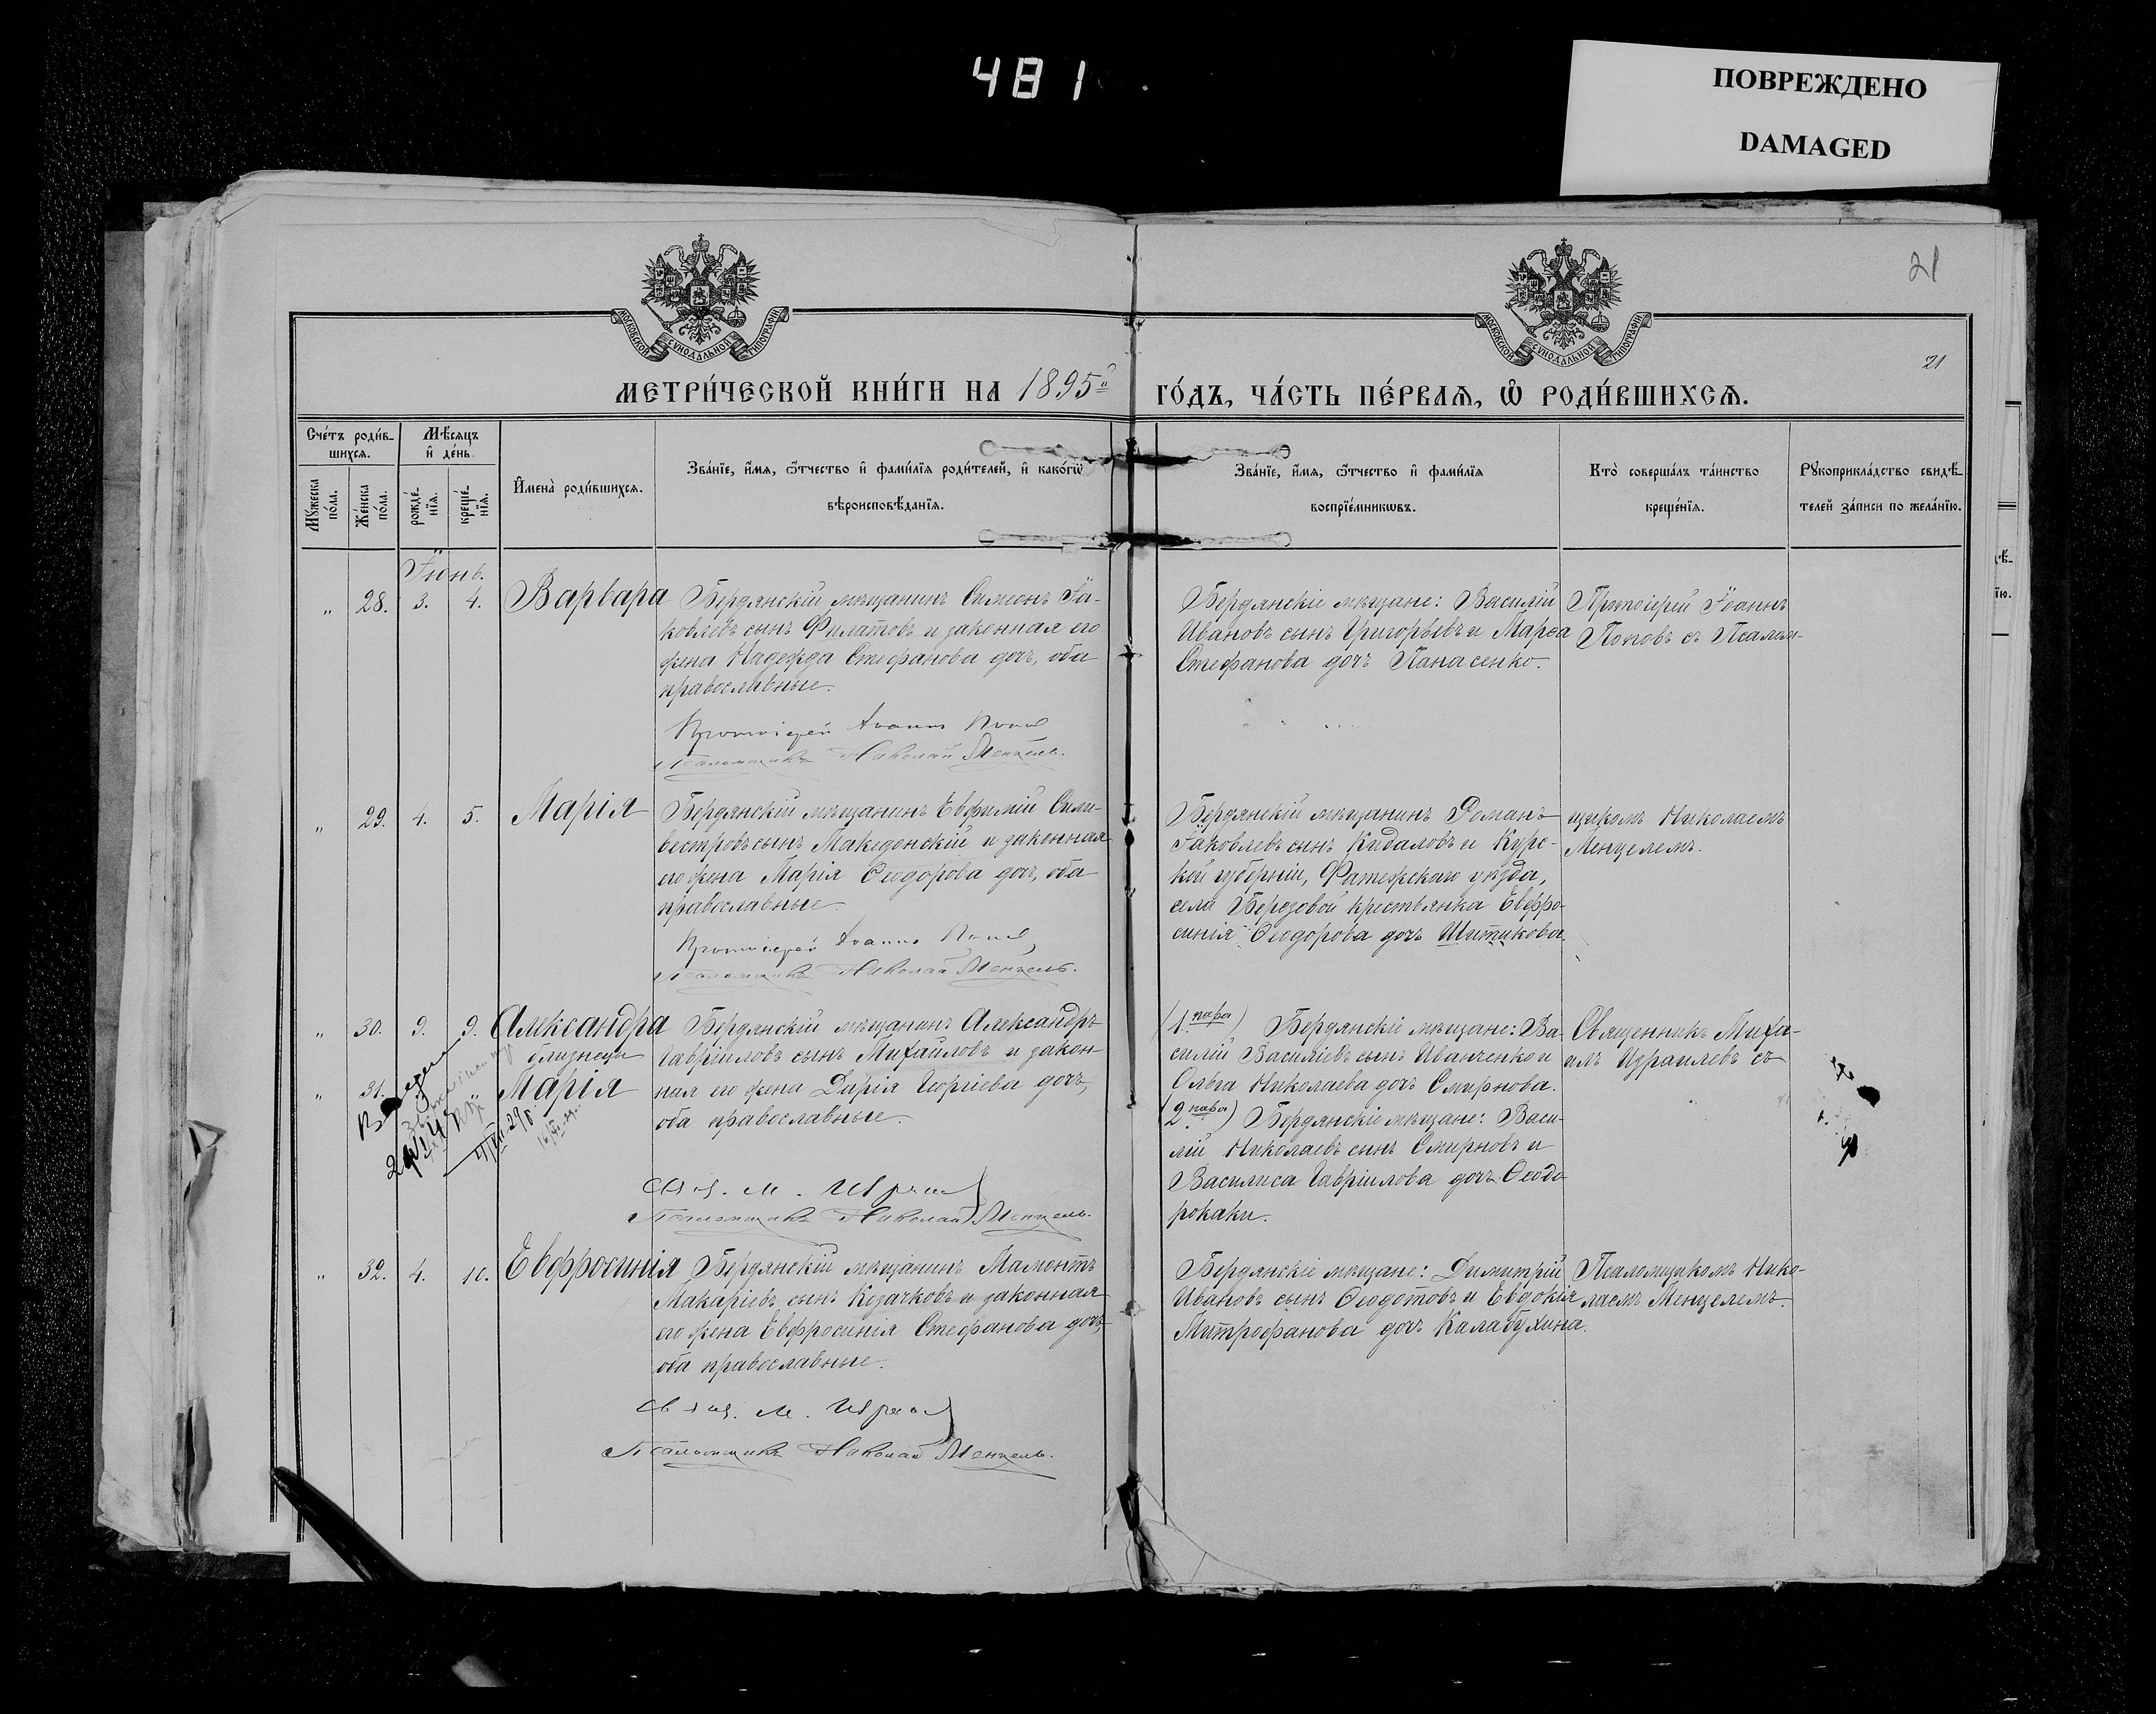 481
ПОВРЕЖДЕНО
DAMAGED
21
МОСКОВСКОЙ СѴНОДАЛЬНОЙ ТИПОГРАФІИ
МОСКОВСКОЙ СѴНОДАЛЬНОЙ ТИПОГРАФІИ
21
МЕТРИ́ЧЕСКОЙ КНИ́ГИ НА 1895й ГО́ДЪ, ЧА́СТЬ ПЕ́РВАѦ, Ѽ РОДИ́ВШИХСѦ.
Сче́тъ роди́в-
шихсѧ.
Мѣ́сѧцъ
и҆ де́нь.
Мꙋ́жеска
по́ла.
Же́нска
по́ла.
рожде́-
нїѧ.
креще́-
нїѧ.
И҆мена̀ роди́вшихсѧ.
Зва́нїе, и҆́мѧ, ѻ҆́тчество и҆ фами́лїѧ роди́телей, и҆ како́гѡ
вѣроисповѣ́данїѧ.
Зва́нїе, и҆́мѧ, ѻ҆́тчество и҆ фами́лїѧ
воспрїе́мникѡвъ.
Кто̀ соверша́лъ та́инство
креще́нїѧ.
Рꙋкоприкла́дство свидѣ́-
телей за́писи по жела́нїю.
Іюнь.
„ 28. 3. 4. Варвара
Бердянскій мѣщанинъ Симеонъ Іа-
ковлевъ сынъ Филатовъ и законная его
жена Надежда Стефанова дочь, оба
православные.
Протоіерей Іоаннъ Попов
Псаломщикъ Николай Менцель.
Бердянскіе мѣщане: Василій
Ивановъ сынъ Григорьевъ и Марѳа
Стефанова дочь Панасенко.
Протоіерей Іоаннъ
Поповъ съ Псалом-
„ 29. 4. 5. Марія
Бердянскій мѣщанинъ Евфимій Силь-
вестровъ сынъ Македонскій и законная
его жена Марія Ѳеодорова дочь, оба
православные
Протоіерей Іоаннъ Попов
Псаломщикъ Николай Менцель.
Бердянскій мѣщанинъ Романъ
Іаковлевъ сынъ Кидаловъ и Курс-
кой губерніи, Фатежскаго уѣзда,
села Березовой крестьянка Евфро-
синія Ѳеодорова дочь Шитикова.
щикомъ Николаемъ
Менцелемъ.
„ 30. 9. 9. Александра
близнецы
„ 31. „ Марія
Бердянскій мѣщанинъ Александръ
Гавріиловъ сынъ Михайловъ и закон-
ная его жена Дарія Георгіева дочь,
оба православные.
Свящ. М. Израил
Псаломщикъ Николай Менцель.
(1. пара) Бердянскіе мѣщане: Ва-
силій Василіевъ сынъ Иванченко и
Ольга Николаева дочь Смирнова.
(2 пара) Бердянскіе мѣщане: Васи-
лій Николаевъ сынъ Смирновъ и
Василиса Гавріилова дочь Ѳеодо-
рокаки.
Священникъ Миха-
илъ Израилевъ съ
„ 32. 4. 10. Евфросинія
Бердянскій мѣщанинъ Мамонтъ
Макаріевъ сынъ Козачковъ и законная
его жена Евфросинія Стефанова дочь,
оба православные.
Свящ. М. Израил
Псаломщикъ Николай Менцель.
Бердянскіе мѣщане: Димитрій
Ивановъ сынъ Ѳеодотовъ и Евдокія
Митрофанова дочь Калабухина.
Псаломщикомъ Нико-
лаемъ Менцелемъ.